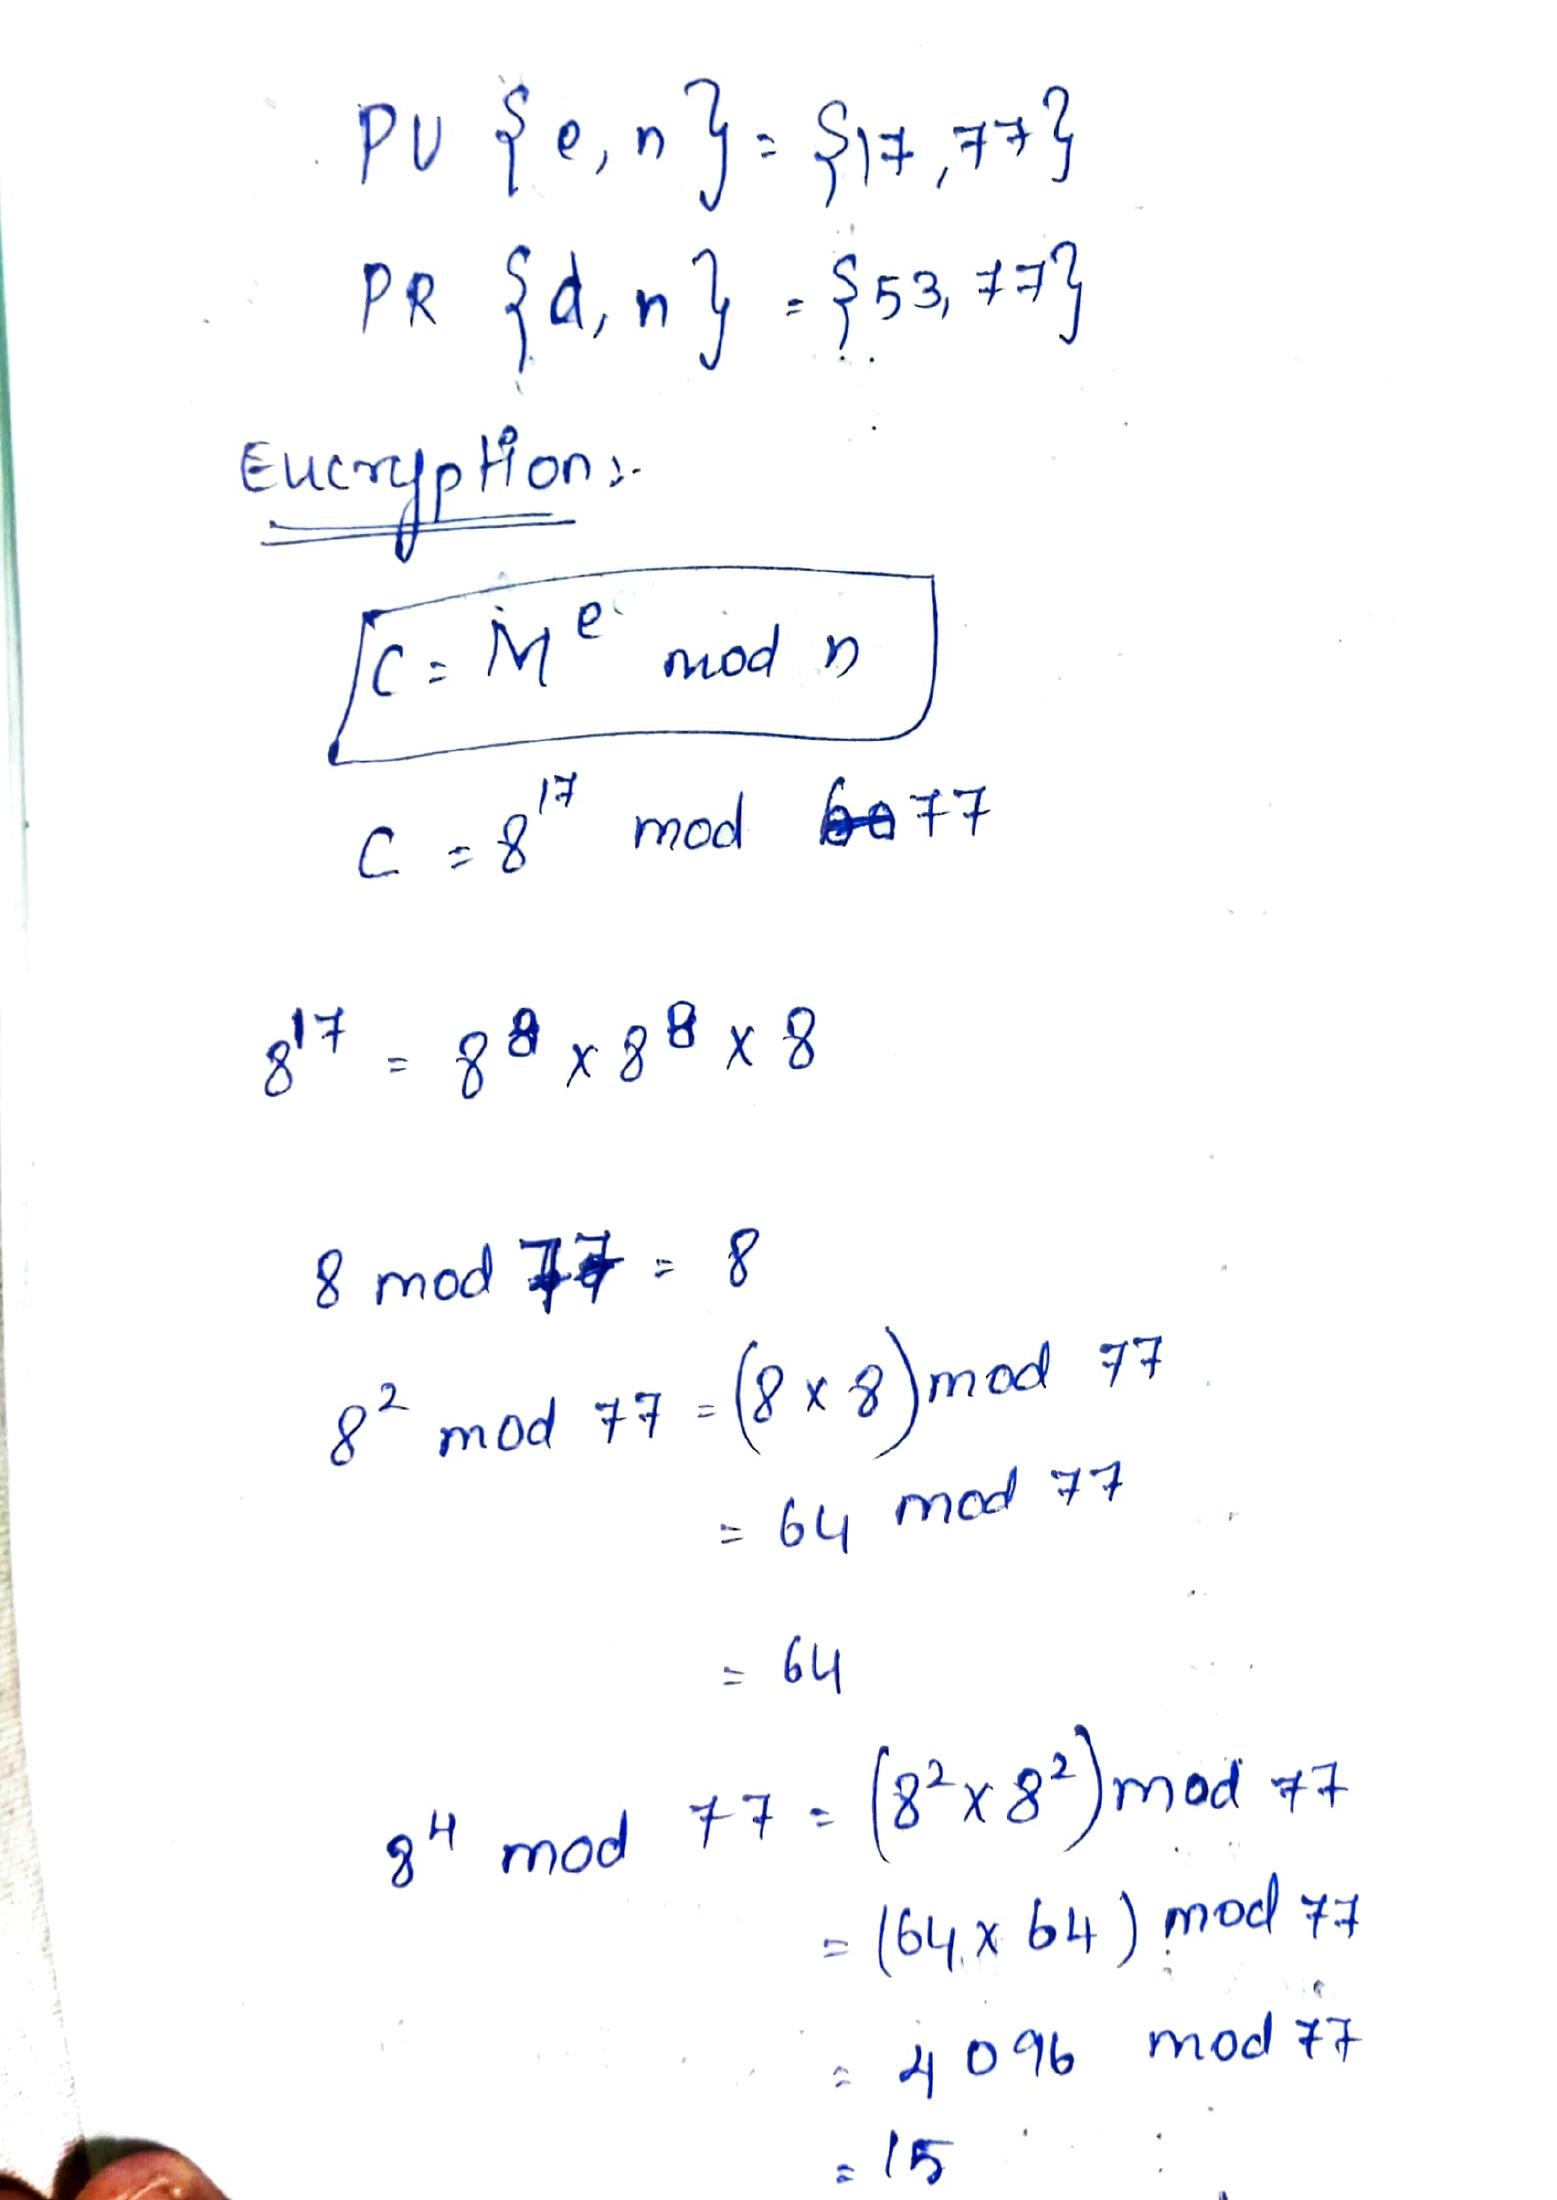 PU {e, n} = {17, 77}
PR {d, n} = {53, 77}
Encryption:-
C = M^e mod n
C = 8^17 mod 77
8^17 = 8^8 x 8^8 x 8
8 mod 77 = 8
8^2 mod 77 = (8 x 8) mod 77
= 64 mod 77
= 64
8^4 mod 77 = (8^2 x 8^2) mod 77
= (64 x 64) mod 77
= 4096 mod 77
= 15